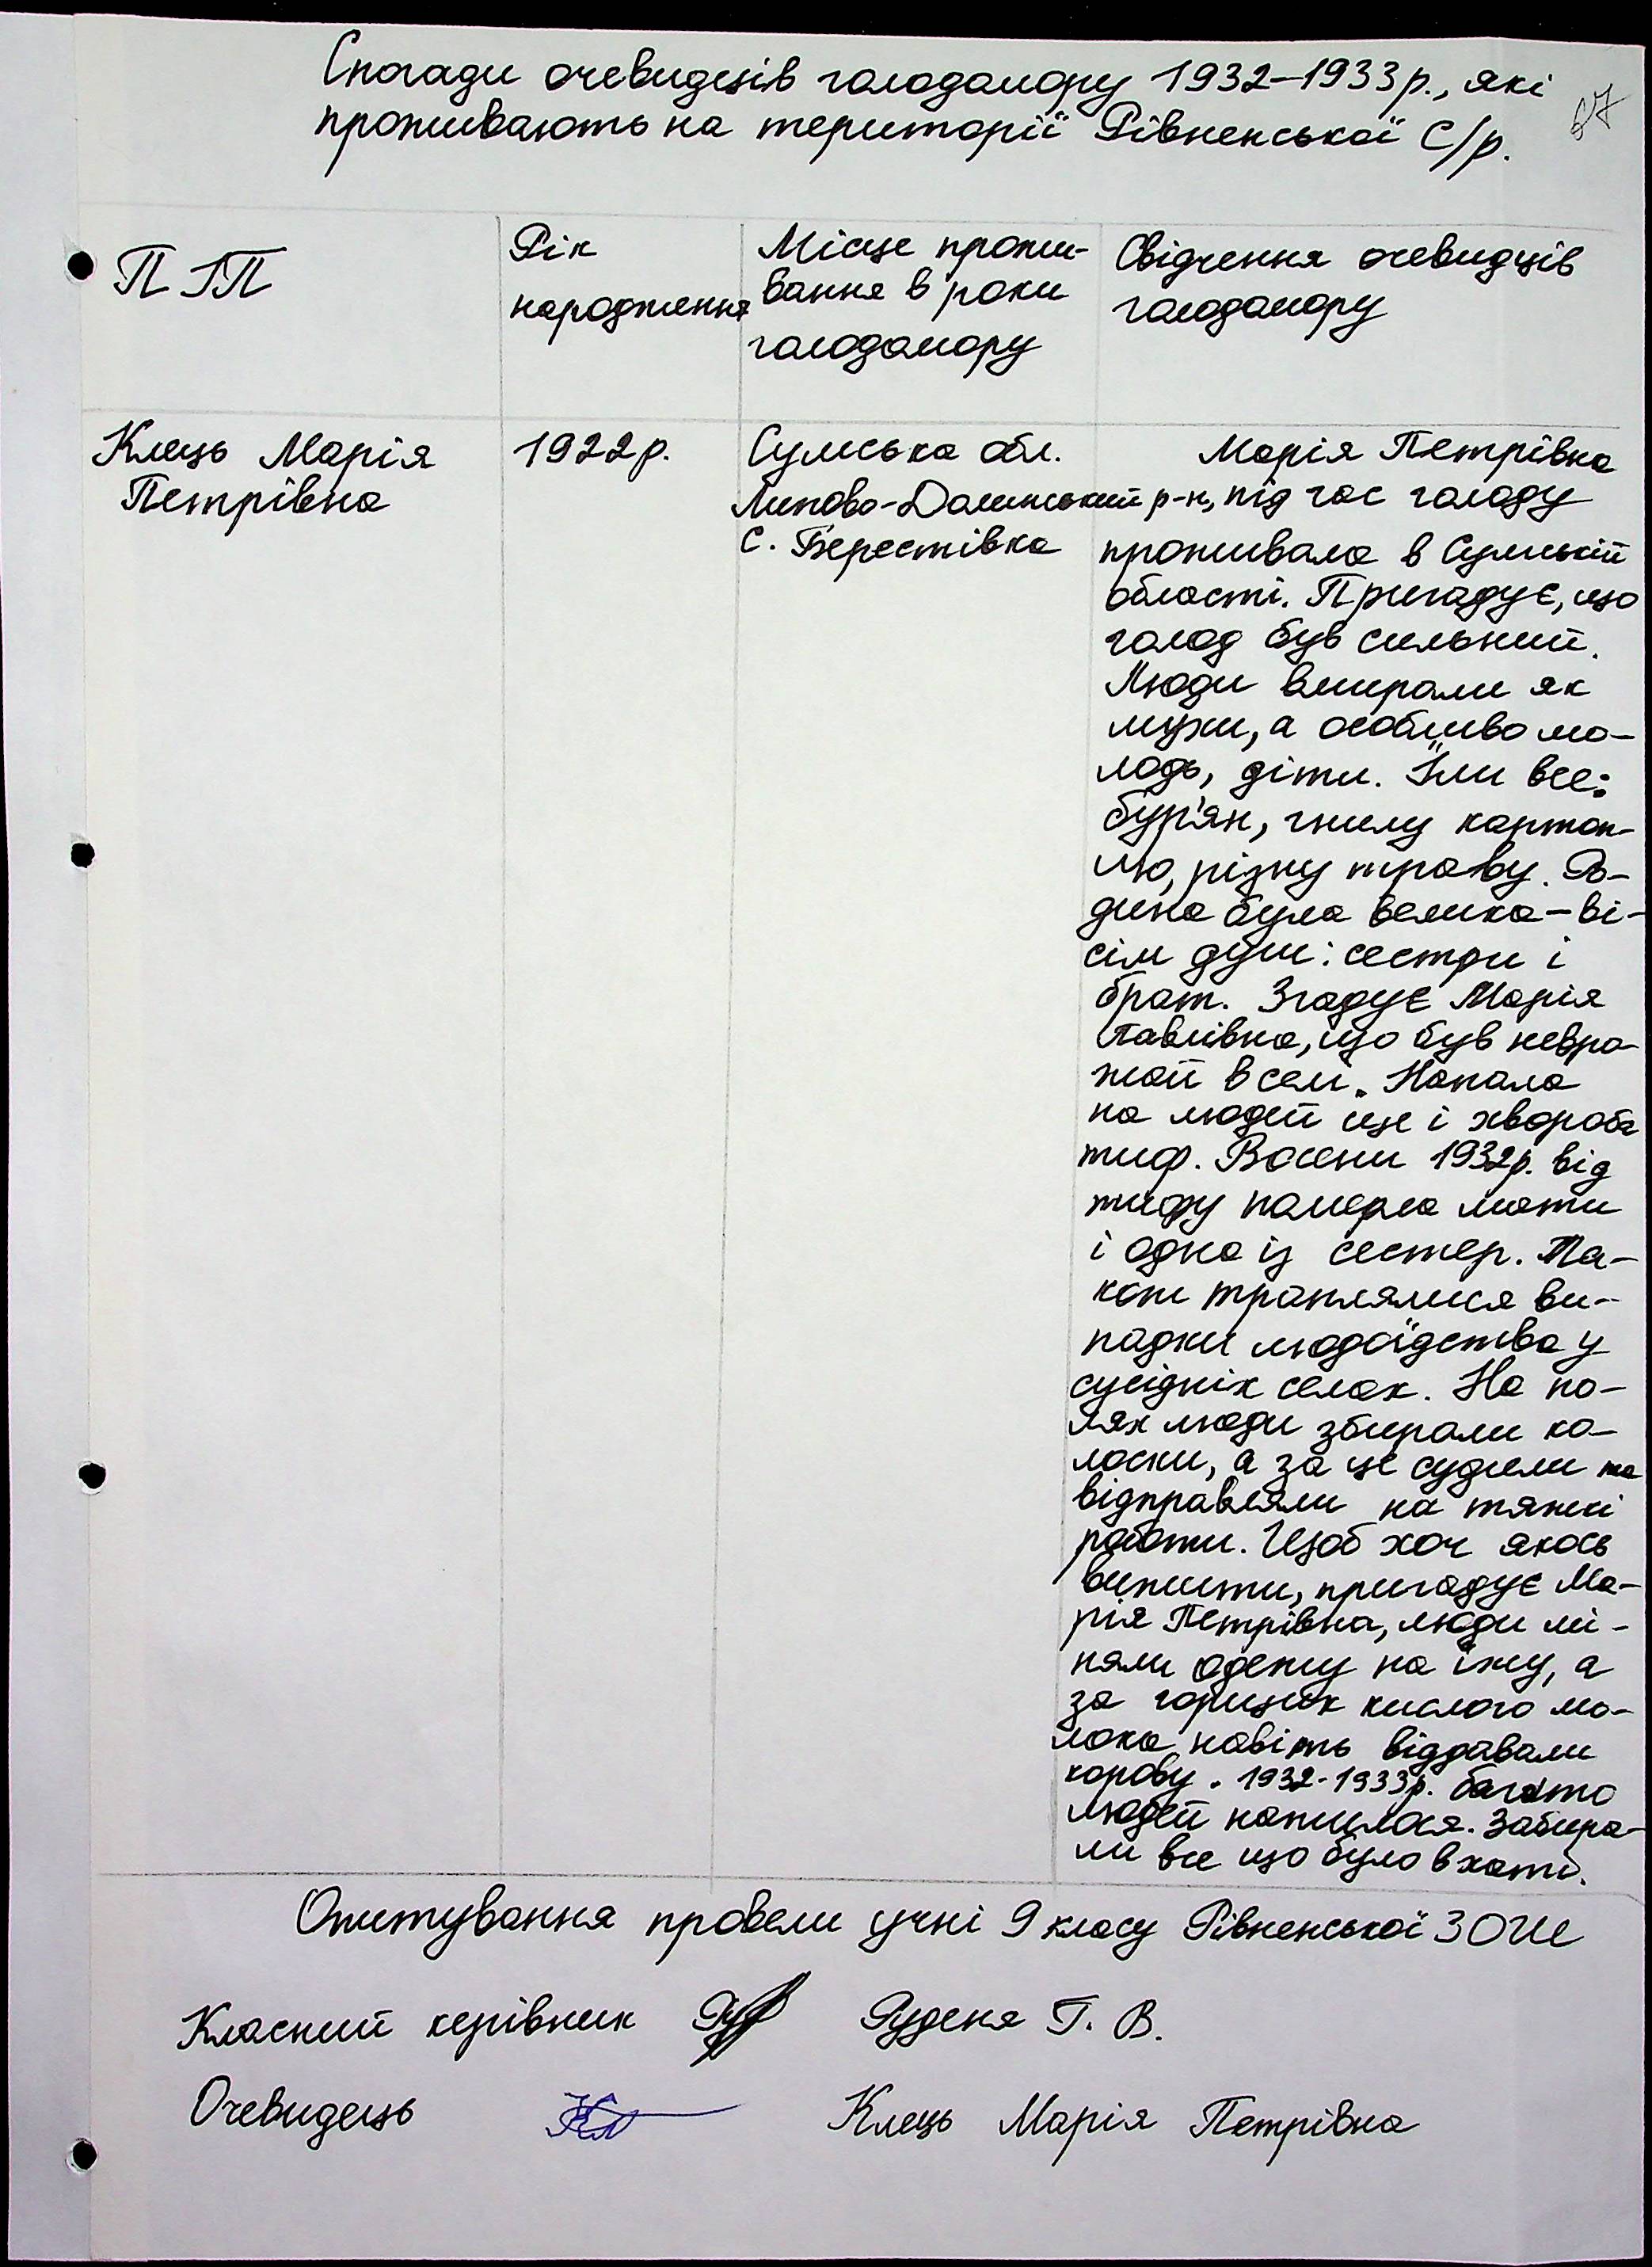 Спогади очевидців голодомору 1932–1933 р., які
проживають на території Рівненської С/р.
67
П І П
Рік
народження
Місце прожи-
вання в роки
голодомору
Свідчення очевидців
голодомору
Клець Марія
Петрівна
1922 р.
Сумська обл.
Липово-Долинський р-н,
с. Берестівка
Марія Петрівна
під час голоду
проживала в Сумській
області. Пригадує, що
голод був сильний.
Люди вмирали як
мухи, а особливо мо-
лодь, діти. Їли все:
бур'ян, гнилу картоп-
лю, різну траву. Ро-
дина була велика – ві-
сім душ: сестри і
брат. Згадує Марія
Павлівна, що був невро-
жай в селі. Напала
на людей ще і хвороба
тиф. Восени 1932р. від
тифу померла мати
і одна із сестер. Та-
кож траплялися ви-
падки людоїдства у
сусідніх селах. На по-
лях люди збирали ко-
лоски, а за це судили та
відправляли на тяжкі
работи. Щоб хоч якось
вижити, пригадує Ма-
рія Петрівна, люди мі-
няли одежу на їжу, а
за горщик кислого мо-
лока навіть віддавали
корову. 1932-1933р. багато
людей нажилося. Забира-
ли все що було в хаті.
Опитування провели учні 9 класу Рівненської ЗОШ
Класний керівник Руденя Т. В.
Очевидець Клець Марія Петрівна